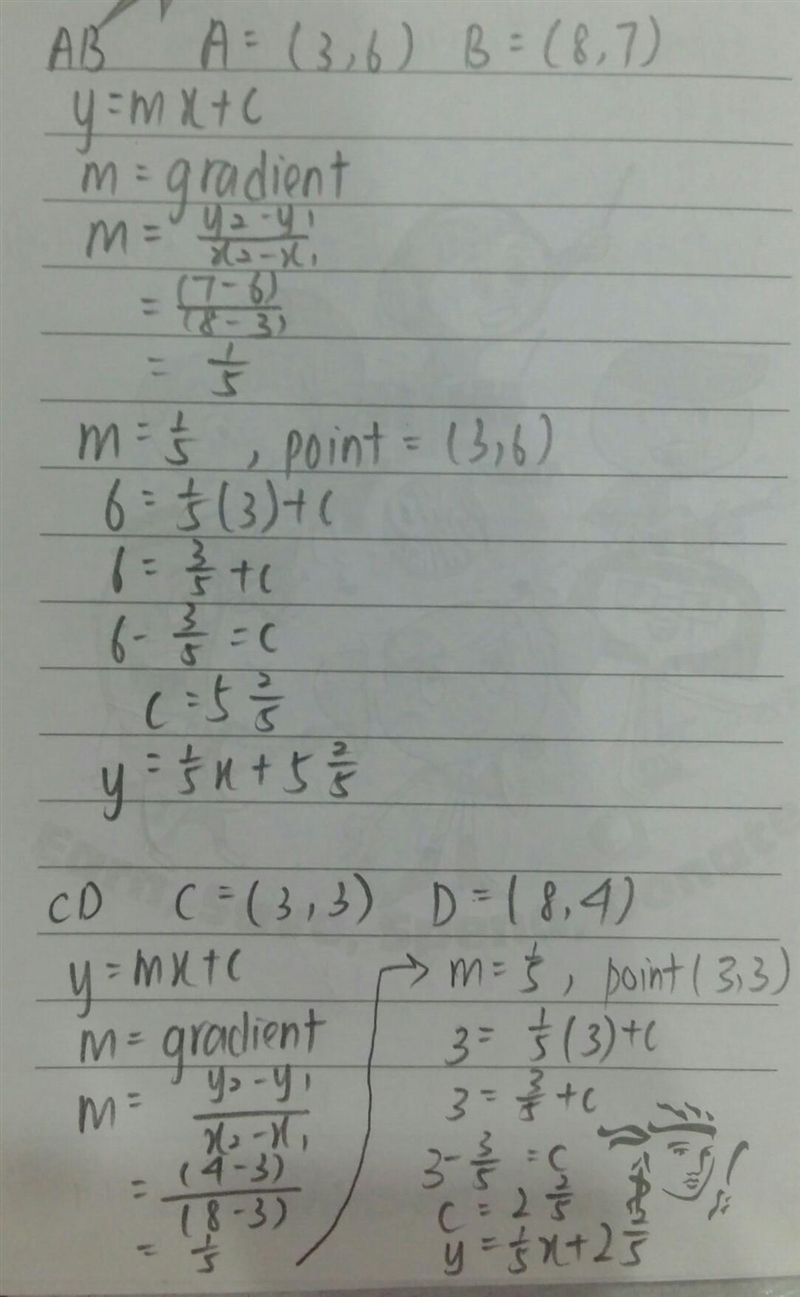 AB A = (3,6) B = (8,7)
y = mx + c
m = gradient
m = y₂ - y₁ / x₂ - x₁
= (7 - 6) / (8 - 3)
= 1/5
m = 1/5 , point = (3,6)
6 = 1/5 (3) + c
6 = 3/5 + c
6 - 3/5 = c
c = 5 2/5
y = 1/5 x + 5 2/5
CD C = (3,3) D = (8,4)
y = mx + c
m = gradient
m = y₂ - y₁ / x₂ - x₁
= (4 - 3) / (8 - 3)
= 1/5
→ m = 1/5 , point (3,3)
3 = 1/5 (3) + c
3 = 3/5 + c
3 - 3/5 = c
c = 2 2/5
y = 1/5 x + 2 2/5